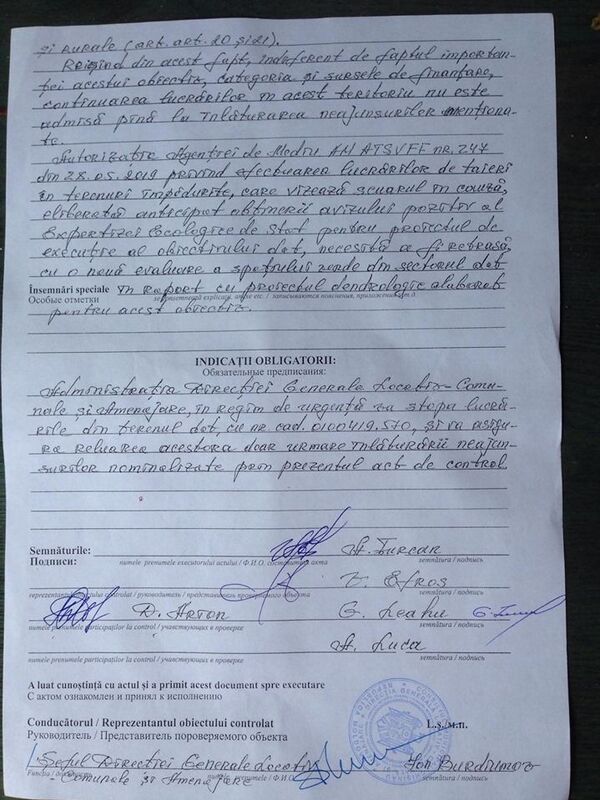 și rurale (art. art. 20 și 21).
Reieșind din acest fapt, indeferent de faptul importan-
ței acestui obiectiv, categoria și sursele de finanțare,
continuarea lucrărilor în acest teritoriu nu este
admisă pînă la înlăturarea neajunsurilor menționa-
te.
Autorizația Agenției de Mediu AM ATSVFF nr. 247
din 28.05.2019 privind efectuarea lucrărilor de tăieri
în terenuri împădurite, care vizează scuarul în cauză,
eliberată anticipat obținerii avizului pozitiv al
Expertizei Ecologice de Stat pentru proiectul de
execuție al obiectivului dat, necesită a fi retrasă,
cu o nouă evaluare a spațiului verde din sectorul dat
Însemnări speciale în raport cu proiectul dendrologic elaborat
Особые отметки
pentru acest obiectiv.
INDICAȚII OBLIGATORII:
Обязательные предписания:
Administrația Direcției Generale Locativ-Comu-
nale și Amenajare, în regim de urgență va stopa lucră-
rile din terenul dat, cu nr. cad. 0100419.570, și va asigu-
ra reluarea acestora doar urmare înlăturării neajun-
surilor nominalizate prin prezentul act de control.
Semnăturile: A. Țurcan
Подписи: numele prenumele executorului actului / Ф.И.О. составителя акта semnătura / подпись
V. Efros
semnătura / подпись
D. Arton G. Leahu
numele prenumele participanților la control / учавствующих в проверке semnătura / подпись
A. Luca
numele prenumele participanților la control / учавствующих в проверке semnătura / подпись
A luat cunoștință cu actul și a primit acest document spre executare
С актом ознакомлен и принял к исполнению
Conducătorul / Reprezentantul obiectului controlat L.ș./м.п.
Руководитель / Представитель пороверяемого объекта
Șeful Direcției Generale Locativ Ion Burdiumov
- Comunale și Amenajare semnătura / подпись